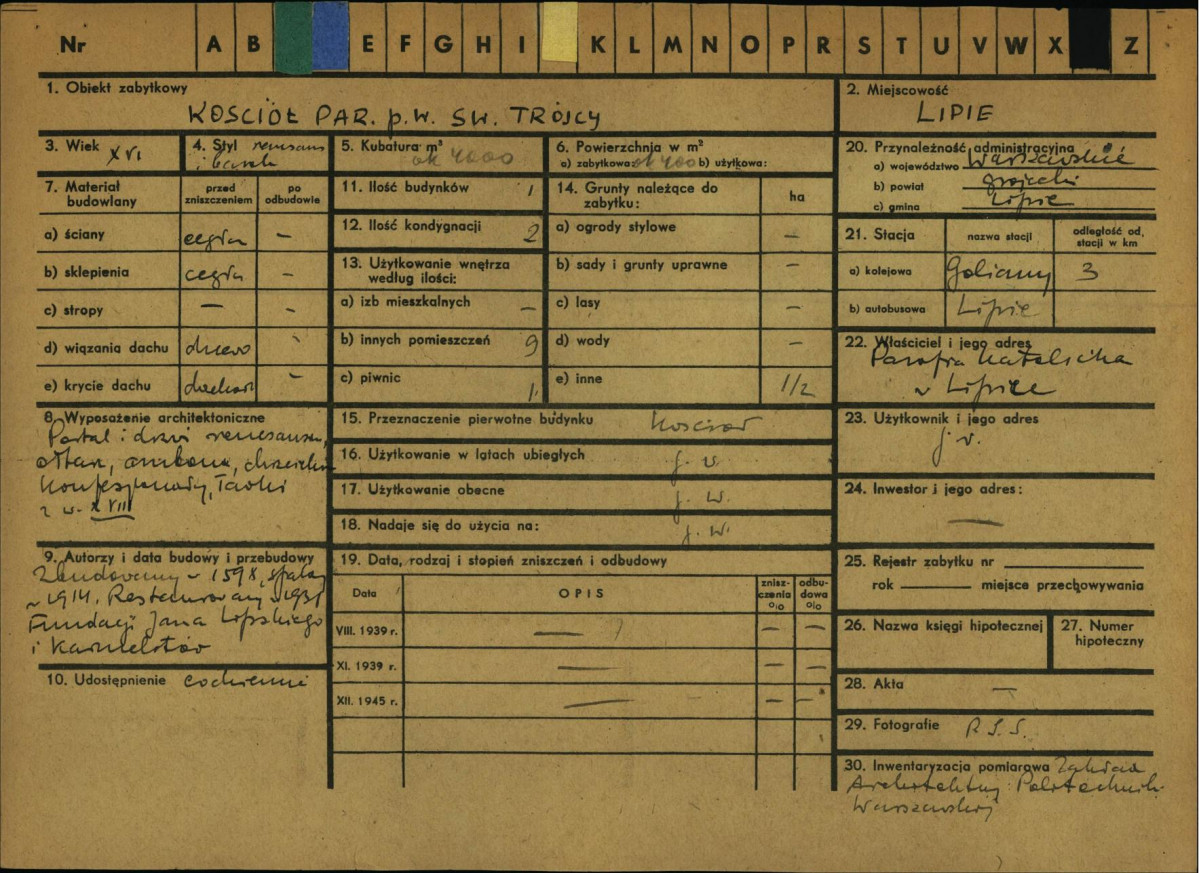 Nr A B E F G H I K L M N O P R S T U V W X Z
1. Obiekt zabytkowy
KOŚCIÓŁ PAR. p.w. ŚW. TRÓJCY
2. Miejscowość
LIPIE
3. Wiek XVI
4. Styl renesans
i barok
5. Kubatura m³ ok 4000
6. Powierzchnia w m²
a) zabytkowa: ok 400 b) użytkowa:
20. Przynależność administracyjna
a) województwo Warszawskie
b) powiat grójecki
c) gmina Lipie
7. Materiał budowlany
przed zniszczeniem
po odbudowie
a) ściany cegła –
b) sklepienia cegła –
c) stropy – –
d) wiązania dachu drzewo -
e) krycie dachu dachów. –
11. Ilość budynków 1
12. Ilość kondygnacji 2
13. Użytkowanie wnętrza
według ilości:
a) izb mieszkalnych –
b) innych pomieszczeń 9
c) piwnic 1
14. Grunty należące do
zabytku: ha
a) ogrody stylowe –
b) sady i grunty uprawne –
c) lasy –
d) wody –
e) inne 1/2
21. Stacja nazwa stacji odległość od
stacji w km
a) kolejowa Goliany 3
b) autobusowa Lipie
22. Właściciel i jego adres
Parafia Katolicka
w Lipiee
8. Wyposażenie architektoniczne
Portal i drzwi renesans.,
ołtarz, ambona, chrzcieln.
Konfesjonały, ławki
z w. XVIII
15. Przeznaczenie pierwotne budynku Kościół
16. Użytkowanie w latach ubiegłych j. w.
17. Użytkowanie obecne j. w.
18. Nadaje się do użycia na: j. w.
23. Użytkownik i jego adres
j. w.
24. Inwestor i jego adres:
—
9. Autorzy i data budowy i przebudowy
Zbudowany w 1598, spalony
w 1914. Restaurowany w 1931
Fundacji Jana Lipskiego
i Karmelitów
10. Udostępnienie codziennie
19. Data, rodzaj i stopień zniszczeń i odbudowy
Data OPIS znisz-
czenia
%
odbu-
dowa
%
VIII. 1939 r. — – –
XI. 1939 r. — – –
XII. 1945 r. — – –
25. Rejestr zabytku nr
rok miejsce przechowywania
26. Nazwa księgi hipotecznej
27. Numer
hipoteczny
28. Akta –
29. Fotografie P.I.S.
30. Inwentaryzacja pomiarowa Zakład
Architektury Politechniki
Warszawskiej